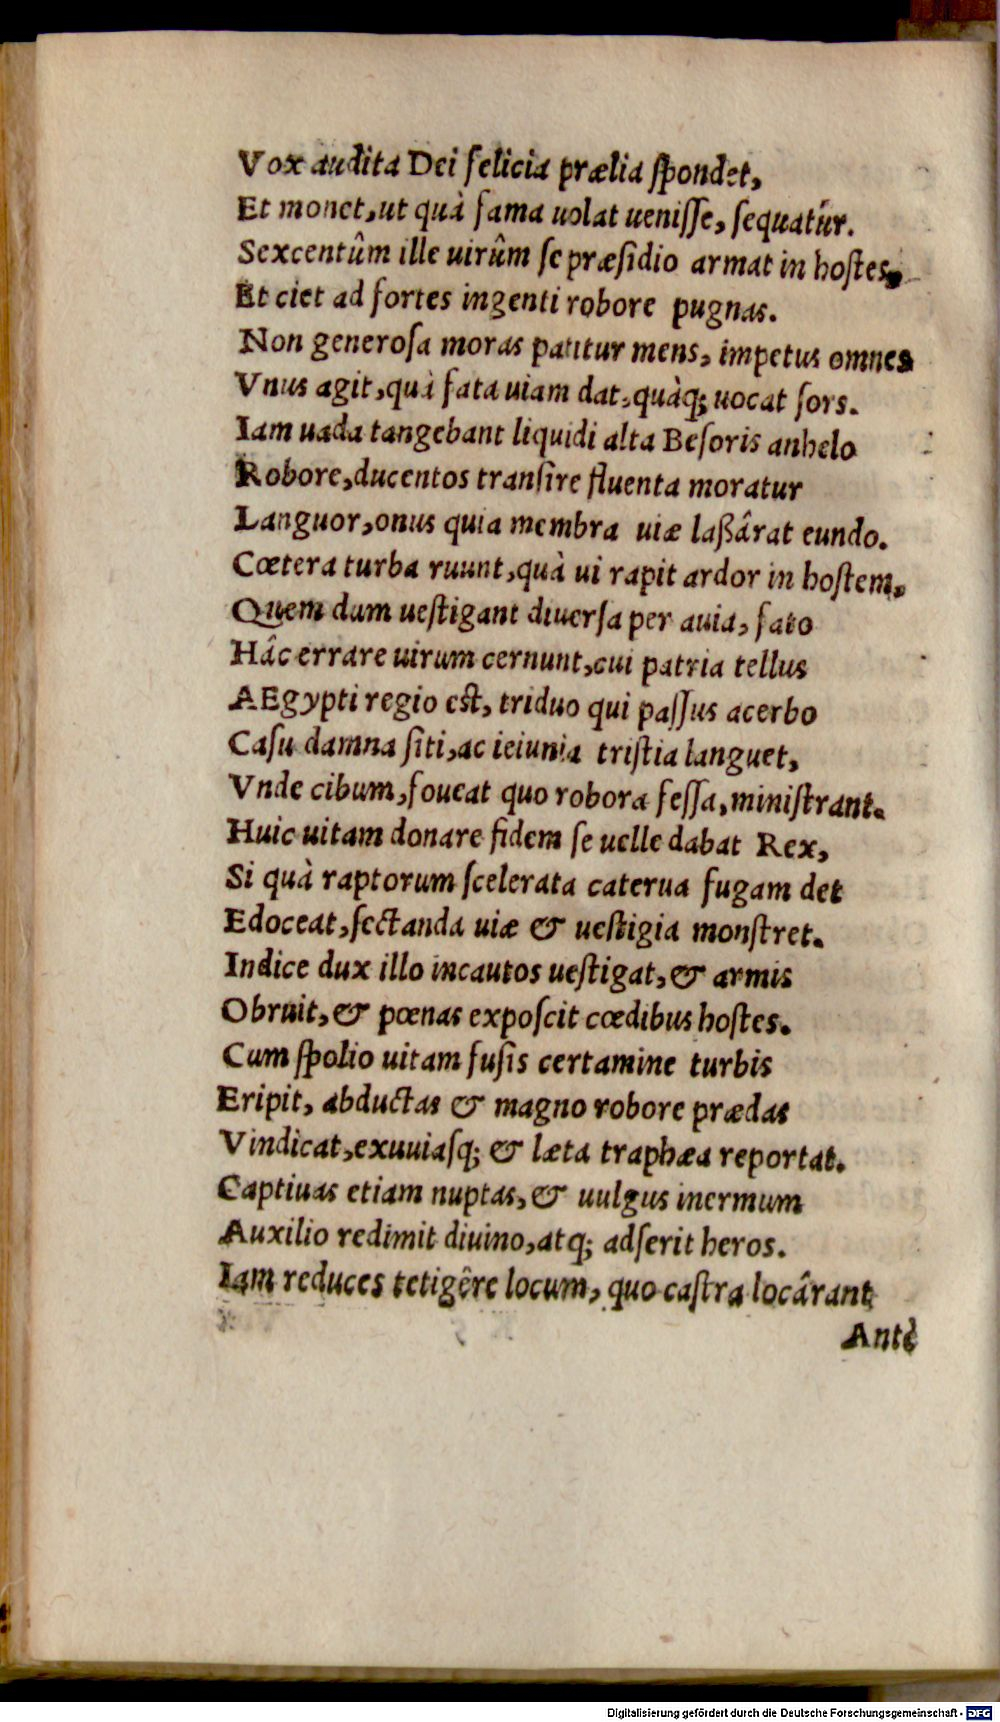 Vox audita Dei felicia prælia ſpondet,
Et monet, ut quà fama uolat ueniſſe, ſequatur.
Sexcentûm ille uirûm ſe præſidio armat in hoſtes,
Et ciet ad fortes ingenti robore pugnas.
Non generoſa moras patitur mens, impetus omnes
Vnus agit, quà fata uiam dat, quàq; uocat ſors.
Iam uada tangebant liquidi alta Beſoris anhelo
Robore, ducentos tranſire fluenta moratur
Languor, onus quia membra uiæ laßârat eundo.
Cœtera turba ruunt, quà ui rapit ardor in hoſtem,
Quem dum ueſtigant diuerſa per auia, fato
Hâc errare uirum cernunt, cui patria tellus
AEgypti regio eſt, triduo qui paſſus acerbo
Caſu damna ſiti, ac ieiunia triſtia languet,
Vnde cibum, foueat quo robora feſſa, miniſtrant.
Huic uitam donare fidem ſe uelle dabat Rex,
Si quà raptorum ſcelerata caterua fugam det
Edoceat, ſectanda uiæ & ueſtigia monſtret.
Indice dux illo incautos ueſtigat, & armis
Obruit, & pœnas expoſcit cœdibus hoſtes.
Cum ſpolio uitam fuſis certamine turbis
Eripit, abductas & magno robore prædas
Vindicat, exuuiaſq; & læta traphæa reportat.
Captiuas etiam nuptas, & uulgus inermum
Auxilio redimit diuino, atq; adſerit heros.
Iam reduces tetigêre locum, quo caſtra locârant
Antè
Digitalisierung gefördert durch die Deutsche Forschungsgemeinschaft - DFG